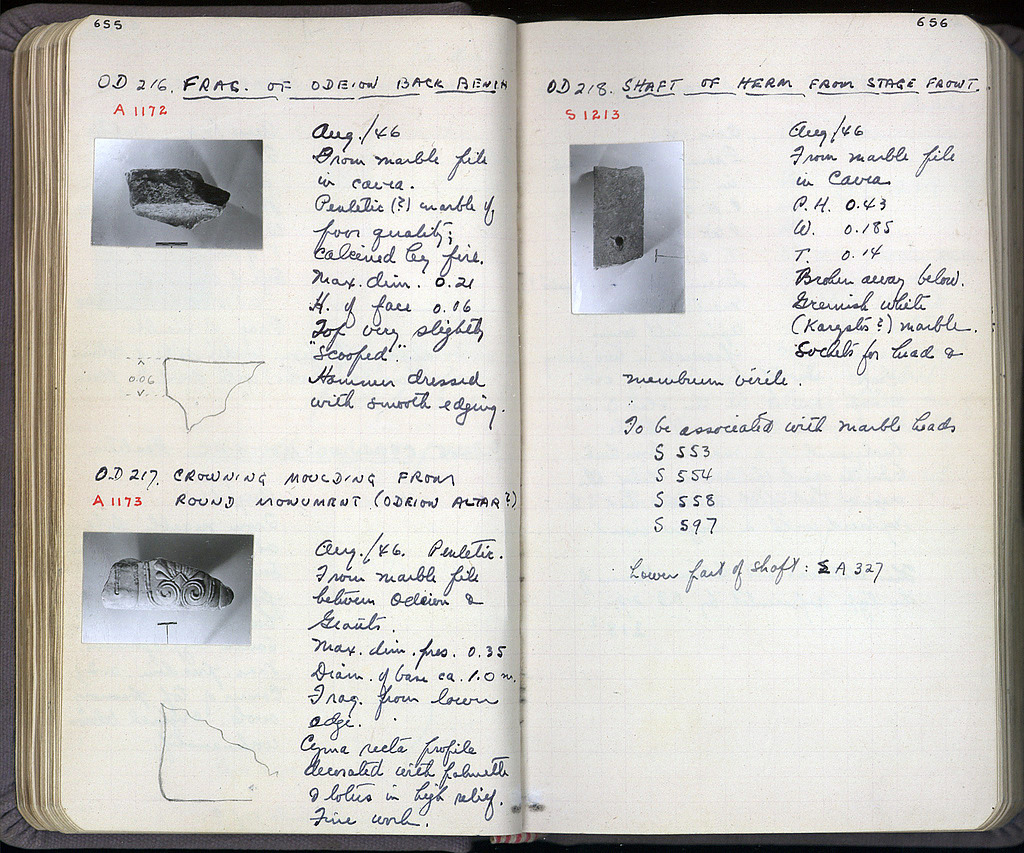 655
OD 216. FRAG. OF ODEION BACK BENCH
A 1172
Aug./46
From marble pile
in cavea.
Pentelic (?) marble of
poor quality;
calcined by fire.
Max. dim. 0.21
H. of face 0.06
Top very slightly
"scooped".
Hammer dressed
with smooth edging.
0.06
OD 217. CROWNING MOULDING FROM
A 1173 ROUND MONUMENT (ODEION ALTAR?)
Aug./46. Pentelic.
From marble pile
between Odeion &
Giants.
Max. dim. pres. 0.35
Diam. of base ca. 1.0 m.
Frag. from lower
edge.
Cyma recta profile
decorated with palmette
& lotus in high relief.
Fine work.
656
OD 218. SHAFT OF HERM FROM STAGE FRONT.
S 1213
Aug/46
From marble pile
in Cavea
P.H. 0.43
W. 0.185
T. 0.14
Broken away below.
Greenish white
(Karystos?) marble.
Sockets for head &
membrum virile.
To be associated with marble heads
S 553
S 554
S 558
S 597
Lower part of shaft: A 327